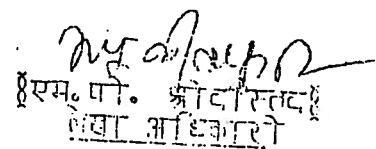 ॥एम. पी. श्रीवास्तव॥
लेखा अधिकारी